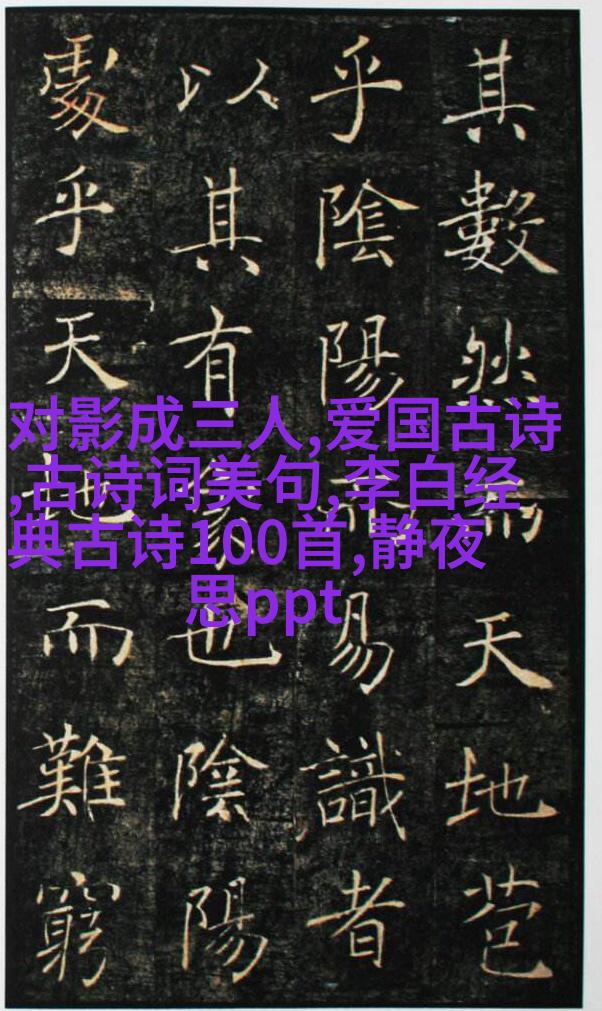 其數然而天地苞
乎陰陽而易識者
以其有象也陰陽
處乎天地而難窮
对影成三人,爱国古诗
,古诗词美句,李白经
典古诗100首,静夜
思ppt